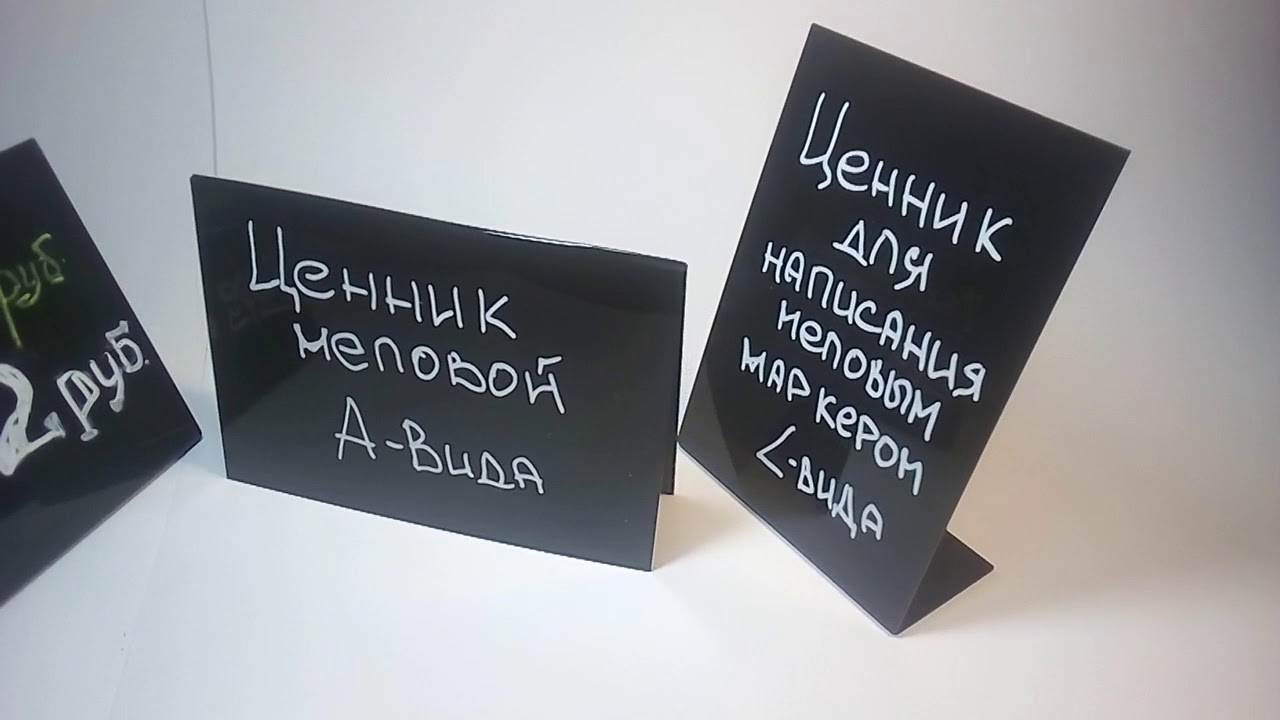 руб.
2 руб.
Ценник
меловой
А-вида
Ценник
для
написания
меловым
маркером
L-вида